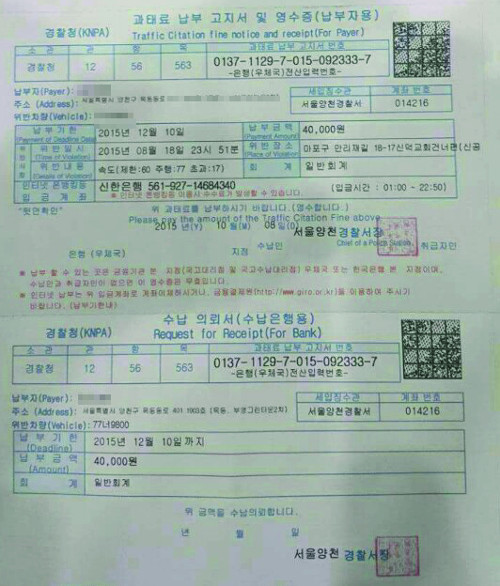 과태료 납부 고지서 및 영수증(납부자용)
경찰청(KNPA) Traffic Citation fine notice and receipt(For Payer)
소 관 관 항 목 과태료 납부 고지서 번호
경찰청 12 56 563 0137-1129-7-015-092333-7
-은행(우체국)전산입력번호-
납부자(Payer): 세입징수관 계좌 번호
주소 (Address): 서울특별시 양천구 목동동로 서울양천경찰서 014216
위반차량(Vehicle):
납 부 기 한 (Payment of Deadline Date) 2015년 12월 10일 납 부 금 액 (Payment Amount) 40,000원
위 반 일 시 (Time of Violation) 2015년 08월 18일 23시 51분 위 반 장 소 (Place of Violation) 마포구 만리재길 18-17신덕교회건너편(신공
위 반 내 용 (Details of Violation) 속도(제한:60 주행:77 초과:17) 회 계 일반회계
인터넷 은행킹등 입 금 계 좌 신한은행 561-927-14684340 (입금시간 : 01:00 - 22:50)
※ 인터넷 은행킹 이용시 수수료가 발생할 수 있습니다.
"뒷면확인" 위 과태료를 납부하시기 바랍니다.(영수합니다.)
Please pay the amount of the Traffic Citation Fine above.
2015 년(Y) 10 월(M) 08 일(D) 서울양천경찰서장
Chief of a Police Station
은행 (우체국) 지점 수납인 취급자인
※ 납부 할 수 있는 곳은 금융기관 본·지점(국고대리점 및 국고수납대리점) 우체국 또는 한국은행 본·지점이며,
수납인과 취급자인이 없으면 이 영수증은 무효입니다.
※ 인터넷 납부는 위 입금계좌로 계좌이체하시거나, 금융결제원(http://www.giro.or.kr)을 이용하여 주시기
바랍니다. (납부기한내)
수납 의뢰서(수납은행용)
경찰청(KNPA) Request for Receipt(For Bank)
소 관 관 항 목 과태료 납부 고지서 번호
경찰청 12 56 563 0137-1129-7-015-092333-7
-은행(우체국)전산입력번호-
납부자(Payer): 세입징수관 계좌 번호
주소 (Address): 서울특별시 양천구 목동동로 401 1003호 (목동, 부영그린타운2차) 서울양천경찰서 014216
위반차량(Vehicle): 77너9800
납 부 기 한 (Deadline) 2015년 12월 10일까지
납 부 금 액 (Amount) 40,000원
회 계 일반회계
위 금액을 수납의뢰합니다.
년 월 일
서울양천 경찰서장